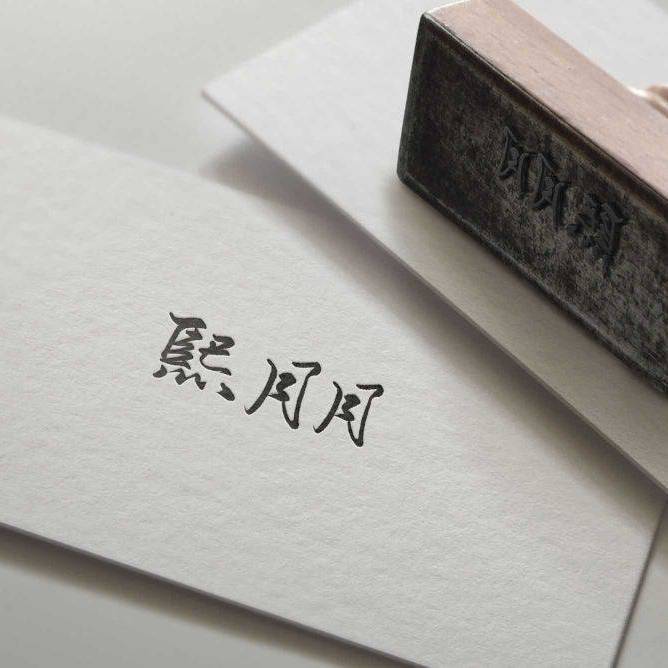 熙月月